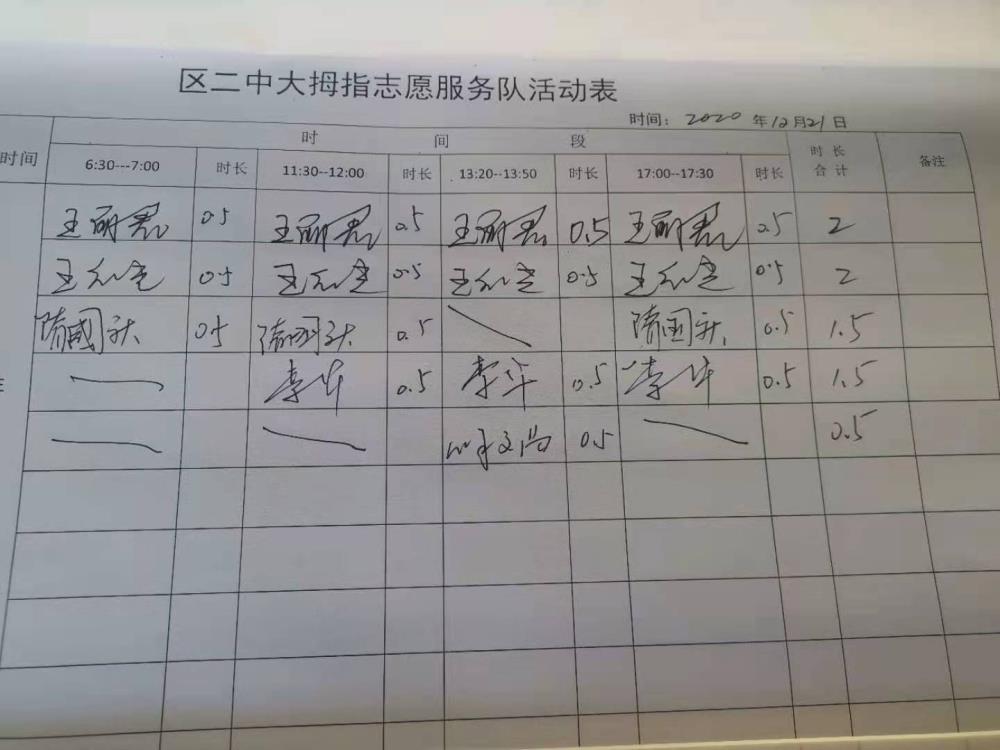 区二中大拇指志愿服务队活动表
时间: 2020 年12月21日
时间 时 间 段 时长合计 备注
6:30---7:00 时长 11:30--12:00 时长 13:20--13:50 时长 17:00--17:30 时长
王丽君 0.5 王丽君 0.5 王丽君 0.5 王丽君 0.5 2
王 0.5 王 0.5 王 0.5 王 0.5 2
隋國秋 0.5 隋国秋 0.5 隋国秋 0.5 1.5
李华 0.5 李华 0.5 李华 0.5 1.5
0.5 0.5